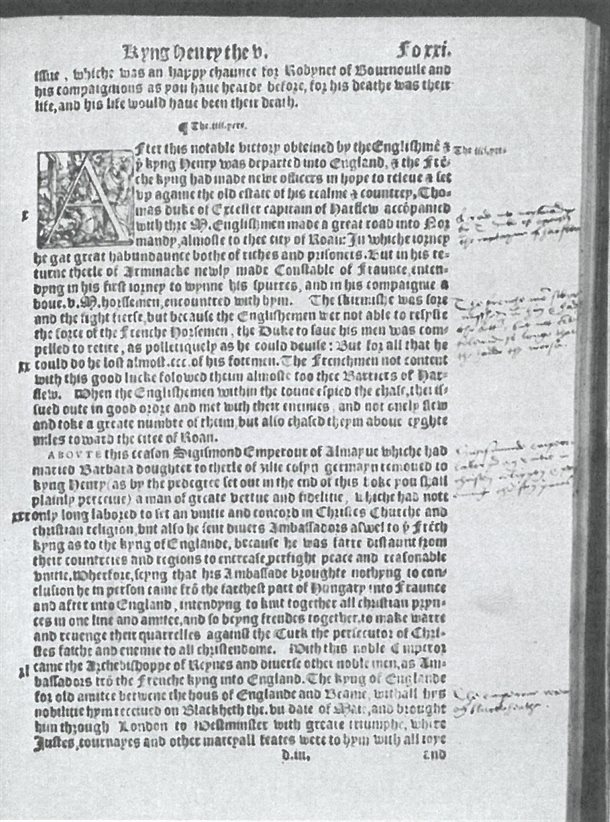 Kyng Henry the v. Fo xxi.
issue, whiche was an happy chaunce for Robynet of Bournouile and
his compaignions as you haue hearde before, for his deathe was their
life, and his life would haue been their death.
¶ The .iiii. yere.
AFter this notable victory obteined by the Englishmē & The .iiii. yere
ẏ kyng Henry was departed into England, & the Frē-
che kyng had made newe officers in hope to releue & set
vp againe the old estate of his realme & countrey, Tho-
mas duke of Excester capitain of Harflew accōpanied
with thre M. Englishmen made a great road into Nor
mandy, almoste to thee city of Roan: In whiche iorney
he gat great habundaunce bothe of riches and prisoners. But in his re-
turne therle of Arminacke newly made Constable of Fraunce, enten-
dyng in his first iorney to wynne his spurres, and in his compaignie a
boue .v. M. horssemen, encountred with hym. The skirmishe was sore
and the fight fierse, but because the Englishemen wer not able to resyste
the force of the Frenche Horsemen, the Duke to saue his men was com-
pelled to retire, as polletiquely as he could deuise: But for all that he
xx could do he lost almost .ccc. of his fotemen. The Frenchmen not content
with this good lucke folowed theim almoste too thee Barriers of Har-
flew. When the Englishemen within the toune espied the chase, thei is-
sued oute in good ordre and met with their enemies, and not onely slew
and toke a greate numbre of theim, but also chased theym aboue eyghte
miles toward the citee of Roan.
ABOVTE this season Sigismond Emperour of Almayne whiche had
maried Barbara doughter to therle of Zilie cosyn germayn remoued to
kyng Henry (as by the pedegree set out in the end of this boke you shall
plainly perceiue) a man of greate vertue and fidelitie, whiche had note
xxx only long labored to set an vnitie and concord in Christes Churche and
christian religion, but also he sent diuers Ambassadors aswel to ẏ Frēch
kyng as to the kyng of Englande, because he was farre distaunt from
their countreies and regions to encrease perfight peace and reasonable
vnitie. Wherfore, seyng that his Ambassade broughte nothyng to con-
clusion he in person came frō the farthest part of Hungary into Fraunce
and after into England, intendyng to knit together all christian pryn-
ces in one line and amitee, and so beyng frendes together, to make warre
and reuenge their quarrelles against the Turk the persecutor of Chri-
stes faithe and enemie to all christendome. With this noble Emperor
xl came the Archebishoppe of Reynes and diuerse other noble men, as Am-
bassadors frō the Frenche kyng into England. The kyng of Englande
for old amitee betwene the hous of Englande and Beame, withall hys
nobilitie hym receiued on Blackheth the .vii date of Maie, and brought
him through London to Westminster with greate triumphe, where
Justes, tournayes and other marcyall feates were to hym with all ioye
d.iii. and